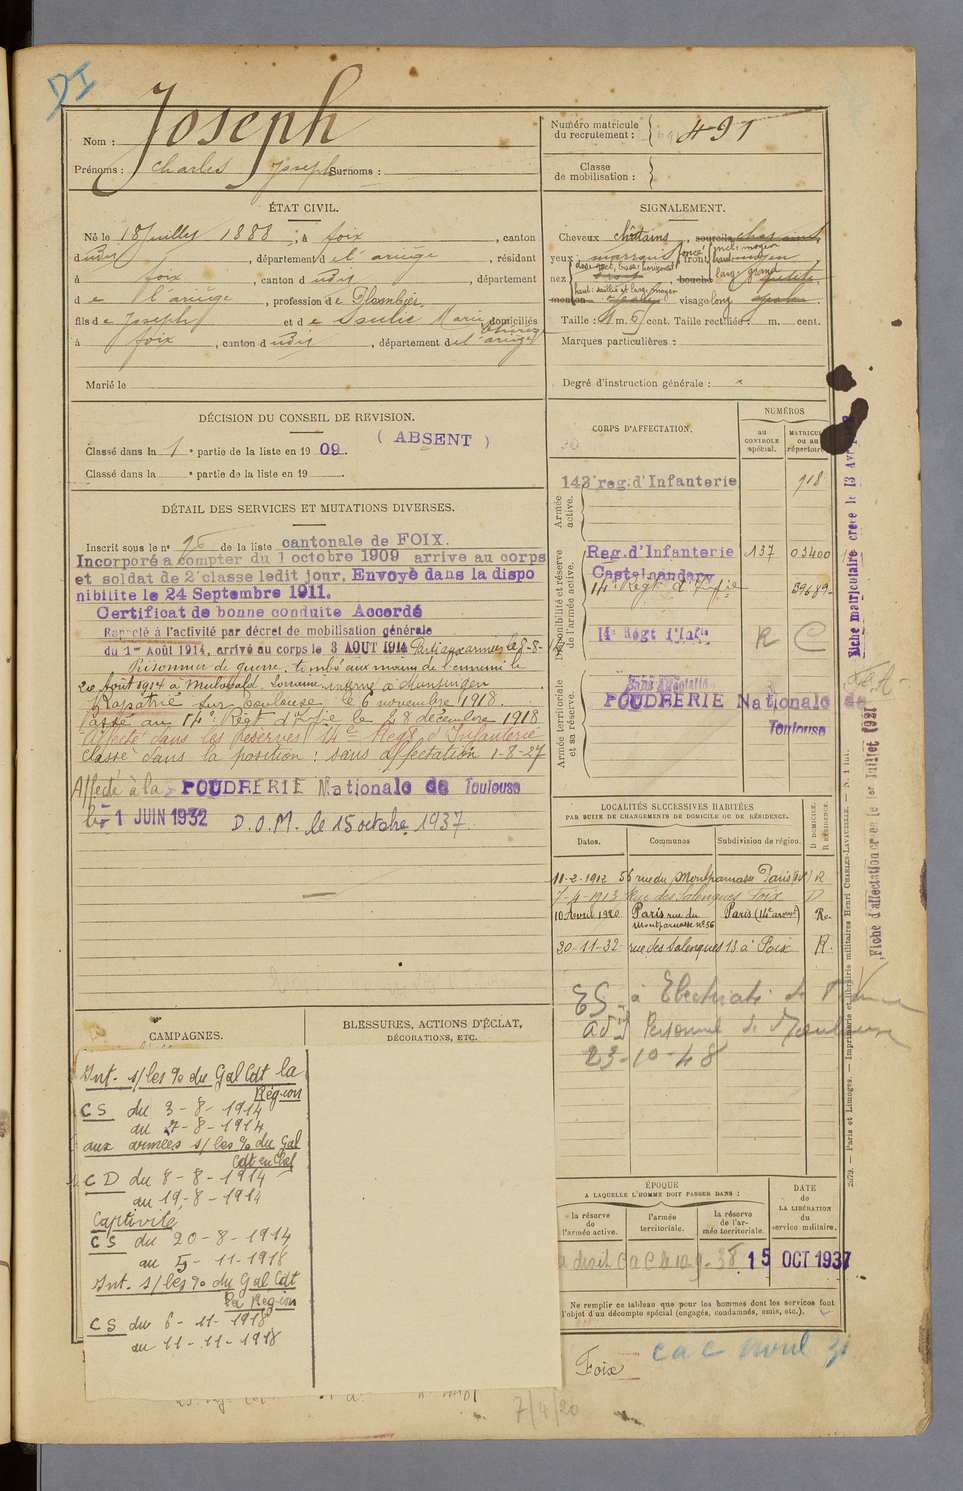 DI
Nom : Joseph
Prénoms : Charles Joseph Surnoms :
Numéro matricule du recrutement : 491
Classe de mobilisation :
ÉTAT CIVIL.
Né le 18 Juillet 1888, à foix, canton
dudit, département de l'ariège, résidant
à foix, canton dudit, département
de l'ariège, profession de Plombier
fils de Joseph et de Soulié Marie domiciliés
à foix, canton dudit, département de l'ariège
Marié le
SIGNALEMENT.
Cheveux châtains, sourcils
yeux marrons foncé, front moyen
nez dos: rect, base: horizontal
haut: saillie et larg: moyen
bouche
menton visage long
Taille : 1 m. 6 cent. Taille rectifiée : m. cent.
Marques particulières :
Degré d'instruction générale :
DÉCISION DU CONSEIL DE REVISION.
( ABSENT )
Classé dans la 1e partie de la liste en 1909.
Classé dans la e partie de la liste en 19
DÉTAIL DES SERVICES ET MUTATIONS DIVERSES.
Inscrit sous le n° de la liste cantonale de FOIX.
Incorporé a compter du 1 octobre 1909 arrive au corps
et soldat de 2e classe ledit jour, Envoyé dans la dispo
nibilite le 24 Septembre 1911.
Certificat de bonne conduite Accordé
Rappelé à l'activité par décret de mobilisation générale
du 1er Août 1914, arrivé au corps le 3 AOUT 1914 Parti aux armées le 8-8-
Prisonnier de guerre, tombé aux mains de l'ennemi le
20 Août 1914 à Mulwald. Lorraine interné à Munsingen
Rapatrié sur Toulouse le 6 novembre 1918.
Passé au 14e Régt d'Infie le 28 décembre 1918
Affecté dans les réserves 14e Régt d'Infanterie
Classé dans la position : sans affectation 1-8-27
Affecté à la POUDRERIE Nationale de Toulouse
le 1 JUIN 1932 D.O.M. le 15 octobre 1937.
CORPS D'AFFECTATION.
NUMÉROS
au CONTROLE spécial.
MATRICULE ou au répertoire
Armée active.
143e reg. d'Infanterie 918
Disponibilité et réserve de l'armée active.
Reg. d'Infanterie 137 03400
Castelnaudary
14e Régt d'Infie 59689
14e Régt d'Infie R C
Armée territoriale et sa réserve.
Sans Affectation
POUDRERIE Nationale de
Toulouse
Fiche matricule créée le 13 Avr
Fiche d'affectation créée le 1er Juillet 1921
LOCALITÉS SUCCESSIVES HABITÉES
PAR SUITE DE CHANGEMENTS DE DOMICILE OU DE RÉSIDENCE.
Dates. Communes Subdivision de région. D DOMICILE. R RÉSIDENCE.
11-2-1912 56 rue du Montparnasse Paris R
7-4-1913 Rue des Salenques Foix D
10 Avril 1920 Paris rue du Montparnasse n° 56 Paris (14e arrond) R.
20-11-32 rue des Salenques 13 à Foix R.
ES. à Electricité de France
adt Personnel de Toulouse
23-10-48
CAMPAGNES.
BLESSURES, ACTIONS D'ÉCLAT,
DÉCORATIONS, ETC.
Int. s/les %o du Gal Cdt la
Région
CS du 3-8-1914
au 7-8-1914
aux armées s/les %o du Gal
Cdt en Chef
CD du 8-8-1914
au 19-8-1914
Captivité
CS du 20-8-1914
au 5-11-1918
Int. s/les %o du Gal Cdt
la Région
CS du 6-11-1918
au 11-11-1918
ÉPOQUE
A LAQUELLE L'HOMME DOIT PASSER DANS :
la réserve de l'armée active.
l'armée territoriale.
la réserve de l'armée territoriale.
DATE de LA LIBÉRATION du service militaire.
a droit C a C le 10 9-38 15 OCT 1937
Ne remplir ce tableau que pour les hommes dont les services font
l'objet d'un décompte spécial (engagés, condamnés, omis, etc.).
Foix
CaC avril 31
7/4/20
2679. — Paris et Limoges. — Imprimerie et librairie militaires Henri CHARLES-LAVAUZELLE.